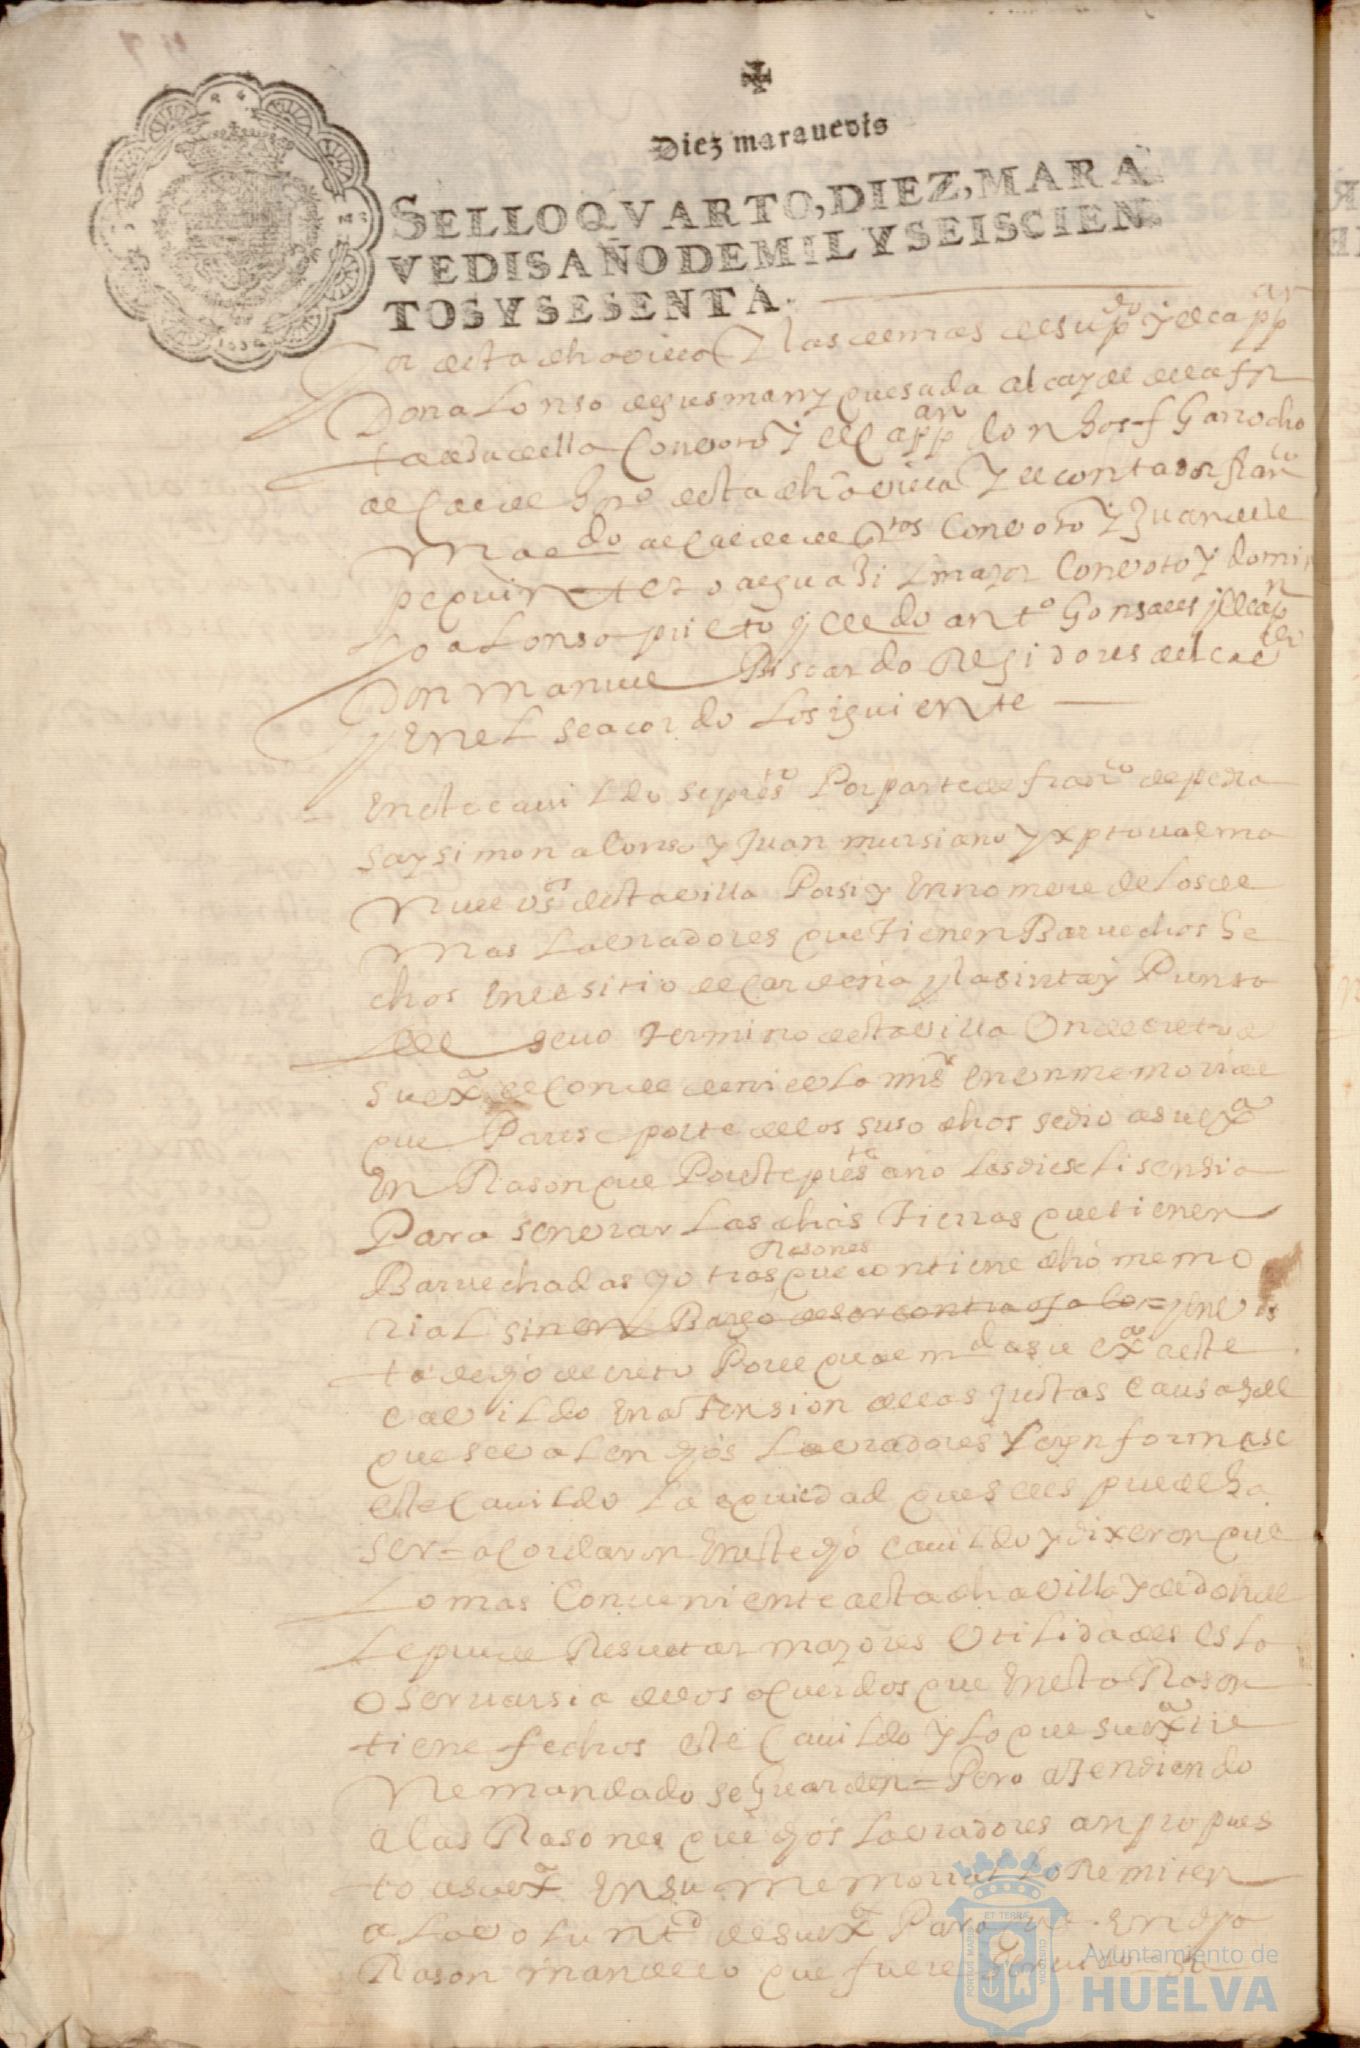 Diez marauedis
SELLO QVARTO, DIEZ, MARA
VEDIS AÑO DE MIL Y SEISCIEN
TOS Y SESENTA.
or desta dha villa Y las demas de su p.do Y el cap.an
Don alonso de gusman y quesada alcayde de la
della Con voto Y el Capp.an don Garrocho
alcalde desta dha villa Y el contador fran.co
alcalde de Con voto Y Juan de
alguasil mayor Con voto Y domin
go alonso prieto y el l.do ant.o Gonsales y el cap.n
Don manuel Piscardo Regidores del
y En el se acordo lo siguiente
En este cauildo se pres.to Por parte de fran.co de pedra
sa y simon alonso y Juan mursiano y xptoual ma
nuel v.os desta villa Por si y En nombre de los de
mas labradores que tienen Baruechos he
chos En el sitio del Cardeña y la sinta y Punta
del seuo termino desta villa Un decreto de
su ex.a el Conde de niebla mi s.r En un memorial
que Parese por te de los suso dhos se dio a su ex.a
En Rason que Por este pres.te año les diese lisensia
Para senbrar las dhas tierras que tienen
Baruechadas y otras Rasones que contiene dho memo
rial sin en Bargo de ser contra y en vis
ta de dho decreto Por el qual m.da su ex.a a este
Cabildo En atension de las justas Causas de
que se balen dhos labradores le ynformase
este Cauildo la equidad que se les puede ha
ser = acordaron En este dho cauildo y dixeron que
lo mas Conueniente a esta dha villa y de donde
le puede Resultar mayores Utilidades es la
oseruarsia de los aquerdos que En esta Rason
tiene fechos este Cauildo y lo que su ex.a tie
ne mandado se Guarden = Pero atendiendo
a las Rasones que dhos labradores an propues
to a su ex.a En su memorial lo Remiten
a la volunt.d de su ex.a Para que En dha
Rason mande lo que fuere seruido
Ayuntamiento de
HUELVA